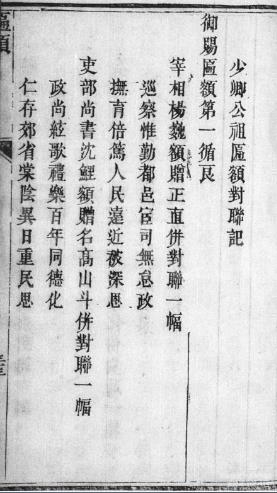 少卿公祖匾額對聯記
御賜匾額第一循良
宰相楊巍額贈正直併對聯一幅
巡察惟勤都邑官司無怠政
撫育倍篤人民遠近被深恩
吏部尚書沈鯉額贈名高山斗併對聯一幅
政尚絃歌禮樂百年同德化
仁存郊省棠陰異日重民恩
匾額